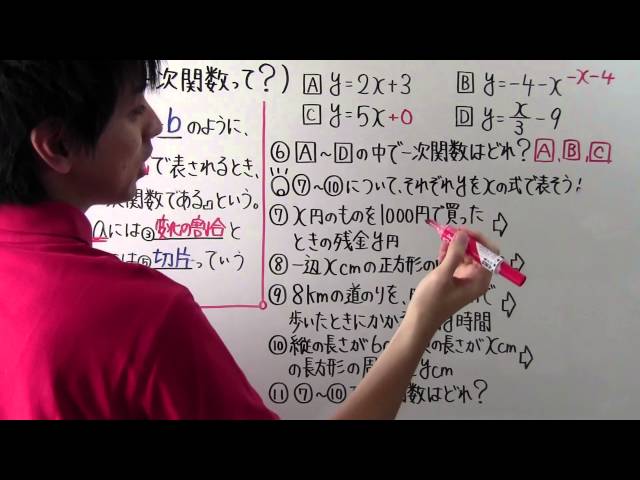 次関数って?)
bのように、
で表されるとき、
次関数である』という。
aには③変化の割合と
は⑤切片っていう
A y=2x+3
B y=-4-x -x-4
C y=5x+0
D y=x/3-9
⑥ A~Dの中で一次関数はどれ? A、B、C
⑦~⑩について、それぞれyをxの式で表そう!
⑦ x円のものを1000円で買った
ときの残金y円
⑧ 一辺xcmの正方形の
⑨ 8kmの道のりを、
歩いたときにかか 時間
⑩ 縦の長さが6 の長さがxcm
の長方形の周 ycm
⑪ ⑦~⑩ 関数はどれ?